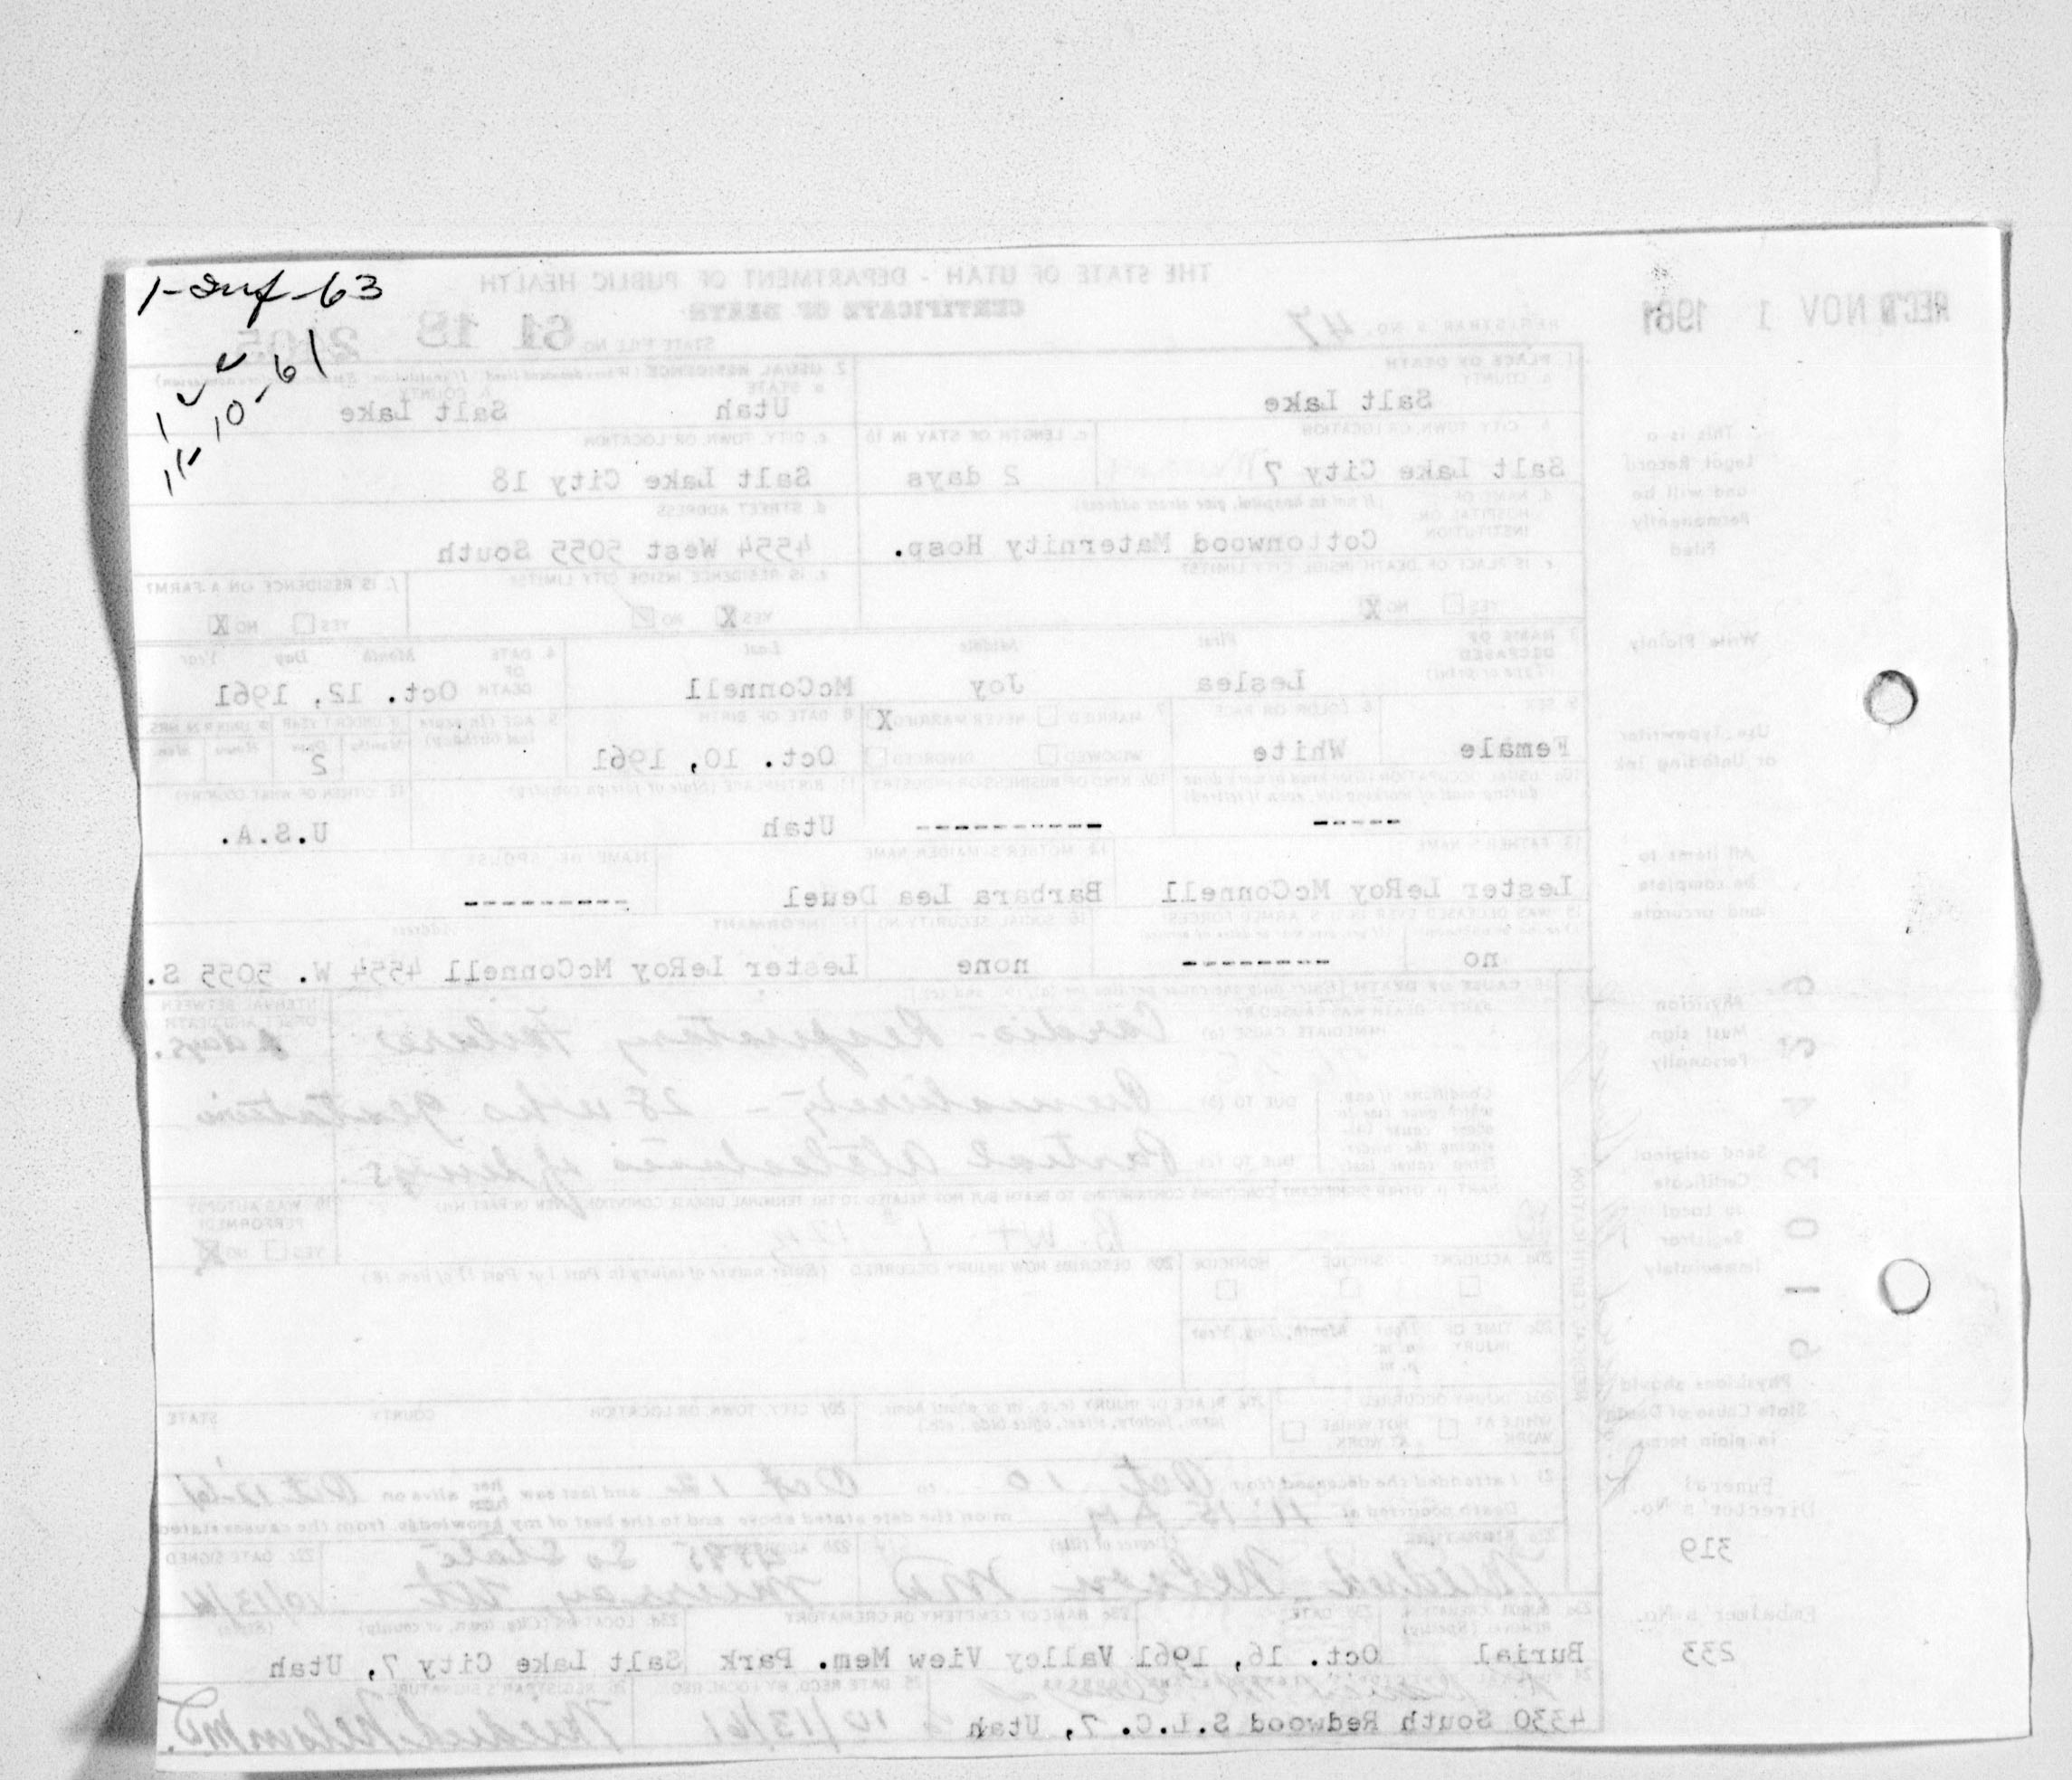 1-Inf-63
THE STATE OF UTAH - DEPARTMENT OF PUBLIC HEALTH
CERTIFICATE OF DEATH
REC'D NOV 1 1961
REGISTRAR'S NO. 47
STATE FILE NO. 61 18 2405
1. PLACE OF DEATH
a. COUNTY
Salt Lake
2. USUAL RESIDENCE (Where deceased lived. If institution: Residence before admission)
a. STATE
Utah
b. COUNTY
Salt Lake
b. CITY, TOWN, OR LOCATION
Salt Lake City 7
c. LENGTH OF STAY IN 1b
2 days
c. CITY, TOWN, OR LOCATION
Salt Lake City 18
d. NAME OF HOSPITAL OR INSTITUTION
(If not in hospital, give street address)
Cottonwood Maternity Hosp.
d. STREET ADDRESS
4554 West 5055 South
e. IS PLACE OF DEATH INSIDE CITY LIMITS?
YES NO X
e. IS RESIDENCE INSIDE CITY LIMITS?
YES X NO
f. IS RESIDENCE ON A FARM?
YES NO X
3. NAME OF DECEASED
(Type or print)
First Middle Last
Leslea Joy McConnell
4. DATE OF DEATH
Month Day Year
Oct. 12, 1961
5. SEX
Female
6. COLOR OR RACE
White
7. MARRIED NEVER MARRIED X
WIDOWED DIVORCED
8. DATE OF BIRTH
Oct. 10, 1961
9. AGE (In years last birthday)
IF UNDER 1 YEAR IF UNDER 24 HRS.
Months Days Hours Min.
2
10a. USUAL OCCUPATION (Give kind of work done during most of working life, even if retired)
-----
10b. KIND OF BUSINESS OR INDUSTRY
-----------
11. BIRTHPLACE (State or foreign country)
Utah
12. CITIZEN OF WHAT COUNTRY?
U.S.A.
13. FATHER'S NAME
Lester LeRoy McConnell
14. MOTHER'S MAIDEN NAME
Barbara Lea Deuel
NAME OF SPOUSE
----------
15. WAS DECEASED EVER IN U.S. ARMED FORCES?
no
---------
16. SOCIAL SECURITY NO.
none
17. INFORMANT Address
Lester LeRoy McConnell 4554 W. 5055 S.
18. CAUSE OF DEATH [Enter only one cause per line for (a), (b), and (c)]
PART I. DEATH WAS CAUSED BY
IMMEDIATE CAUSE (a) Cardio-Respiratory Failure
INTERVAL BETWEEN ONSET AND DEATH
2 days.
Conditions, if any, which gave rise to above cause (a), stating the underlying cause last.
DUE TO (b) Prematurity - 28 wks gestation
DUE TO (c) Partial Atelectasis of Lungs
PART II. OTHER SIGNIFICANT CONDITIONS CONTRIBUTING TO DEATH BUT NOT RELATED TO THE TERMINAL DISEASE CONDITION GIVEN IN PART I(a)
19. WAS AUTOPSY PERFORMED?
YES NO X
20a. ACCIDENT SUICIDE HOMICIDE
20b. DESCRIBE HOW INJURY OCCURRED. (Enter nature of injury in Part I or Part II of item 18)
20c. TIME OF INJURY Hour Month, Day, Year
a. m.
p. m.
20d. INJURY OCCURRED
WHILE AT WORK NOT WHILE AT WORK
20e. PLACE OF INJURY (e.g., in or about home, farm, factory, street, office bldg., etc.)
20f. CITY, TOWN, OR LOCATION COUNTY STATE
21. I attended the deceased from Oct. 10 to Oct 12 and last saw her him alive on Oct 12-61
Death occurred at 11:15 A m on the date stated above and to the best of my knowledge, from the causes stated
22a. SIGNATURE (Degree or title)
Nelson MD
22b. ADDRESS
So State
Murray, Ut
22c. DATE SIGNED
10/13/61
23a. BURIAL, CREMATION, REMOVAL (Specify)
Burial
23b. DATE
Oct. 16, 1961
23c. NAME OF CEMETERY OR CREMATORY
Valley View Mem. Park
23d. LOCATION (City, town, or county) (State)
Salt Lake City 7, Utah
4330 South Redwood S.L.C. 7, Utah
25. DATE RECD. BY LOCAL REG.
10/13/61
26. REGISTRAR'S SIGNATURE
Nelson MD.
MEDICAL CERTIFICATION
This is a
Legal Record
and will be
Permanently
Filed
Write Plainly
Use Typewriter
or Unfading Ink
All items to
be complete
and accurate
Physician
Must sign
Personally
Send original
Certificate
to Local
Registrar
Immediately
Physicians should
State Cause of Death
in plain terms
Funeral
Director's No.
319
Embalmer's No.
233